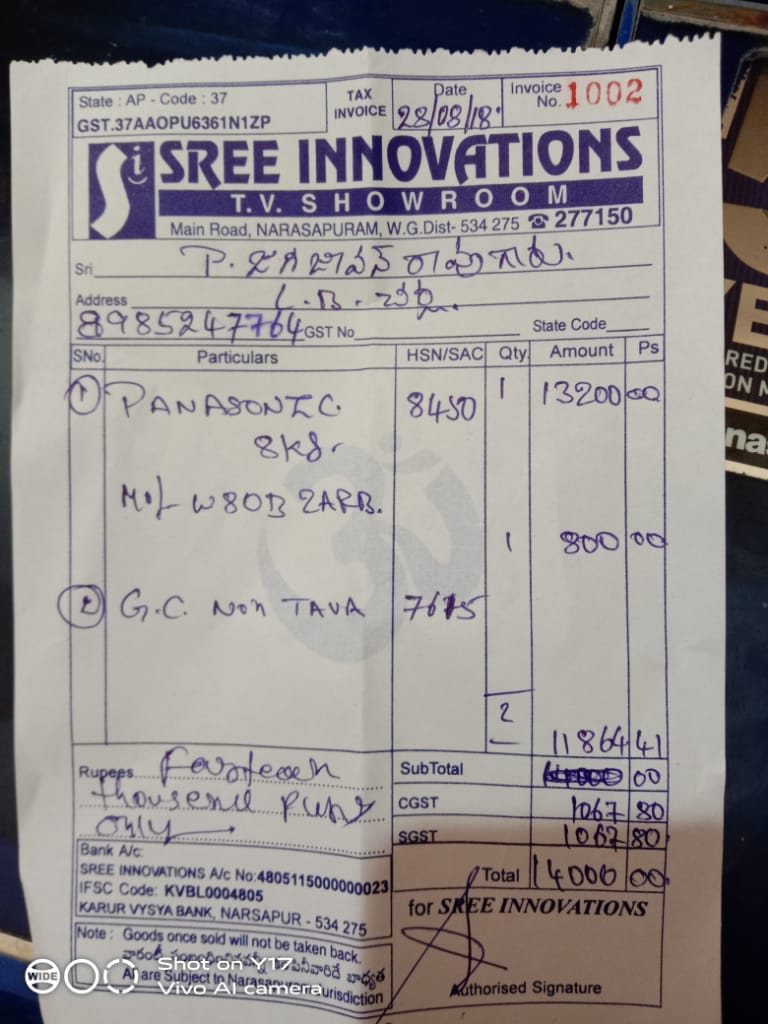 State : AP - Code : 37
GST.37AAOPU6361N1ZP
TAX
INVOICE
Date
28/08/18.
Invoice
No. 1002
Si
SREE INNOVATIONS
T.V. SHOWROOM
Main Road, NARASAPURAM, W.G.Dist- 534 275 ☎ 277150
Sri P.
Address L.B.
8985247764 GST No State Code
SNo. Particulars HSN/SAC Qty. Amount Ps
1 PANASONIC 8450 1 13200 00
8KG.
M/- W80B2ARB.
1 800 00
2 G.C. Non TAVA 7615
2
11864 41
Rupees Fourteen SubTotal 00
thousend
only
CGST 1067 80
SGST 1067 80
Total 14000 00
Bank A/c:
SREE INNOVATIONS A/c No:4805115000000023
IFSC Code: KVBL0004805
KARUR VYSYA BANK, NARSAPUR - 534 275
for SREE INNOVATIONS
Note : Goods once sold will not be taken back.
బాధ్యత
All are Subject to Narasapuram Jurisdiction
Authorised Signature
WIDE
Shot on Y17
Vivo AI camera
RED
ON
nas